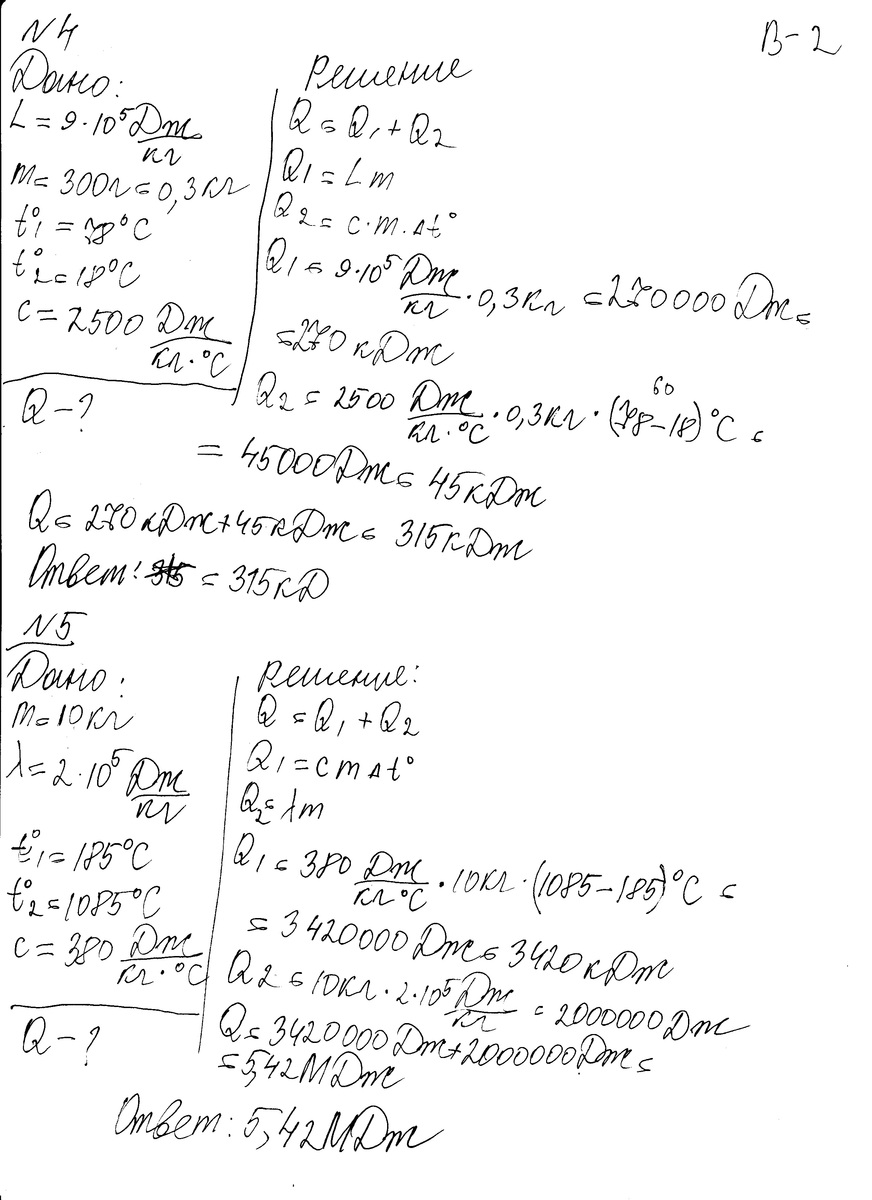 N4
В-2
Дано:
L = 9·10⁵ Дж/кг
m = 300г = 0,3кг
t°₁ = 78°C
t°₂ = 18°C
c = 2500 Дж/кг·°C
Q - ?
Решение
Q = Q₁ + Q₂
Q₁ = Lm
Q₂ = c·m·Δt°
Q₁ = 9·10⁵ Дж/кг · 0,3кг = 270000 Дж =
= 270 кДж
60
Q₂ = 2500 Дж/кг·°C · 0,3кг · (78-18)°C =
= 45000Дж = 45кДж
Q = 270кДж + 45кДж = 315кДж
Ответ: = 315кД
N5
Дано:
m = 10кг
λ = 2·10⁵ Дж/кг
t°₁ = 185°C
t°₂ = 1085°C
c = 380 Дж/кг·°C
Q - ?
Решение:
Q = Q₁ + Q₂
Q₁ = cmΔt°
Q₂ = λm
Q₁ = 380 Дж/кг°C · 10кг · (1085-185)°C =
= 3420000 Дж = 3420кДж
Q₂ = 10кг · 2·10⁵ Дж/кг = 2000000Дж
Q = 3420000 Дж + 2000000Дж =
= 5,42МДж
Ответ: 5,42МДж